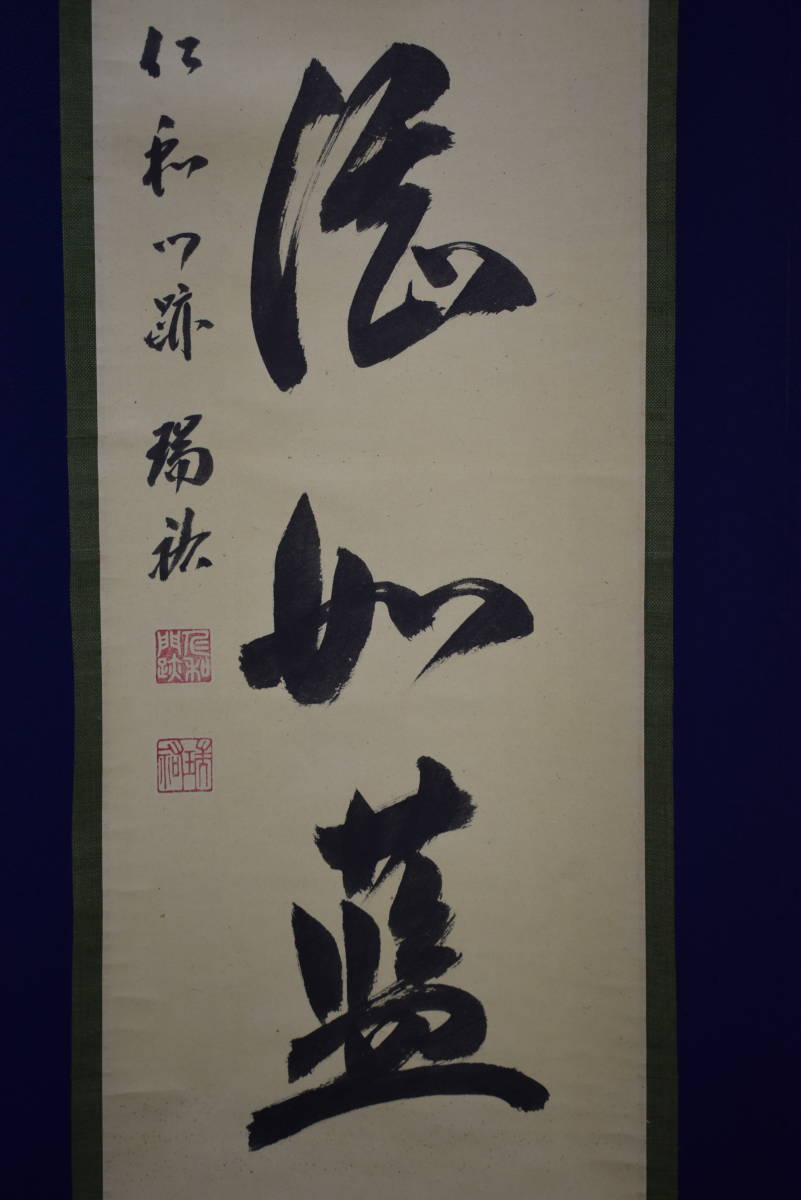 湛如藍
仁和門跡 瑞祐
仁和門跡
瑞祐